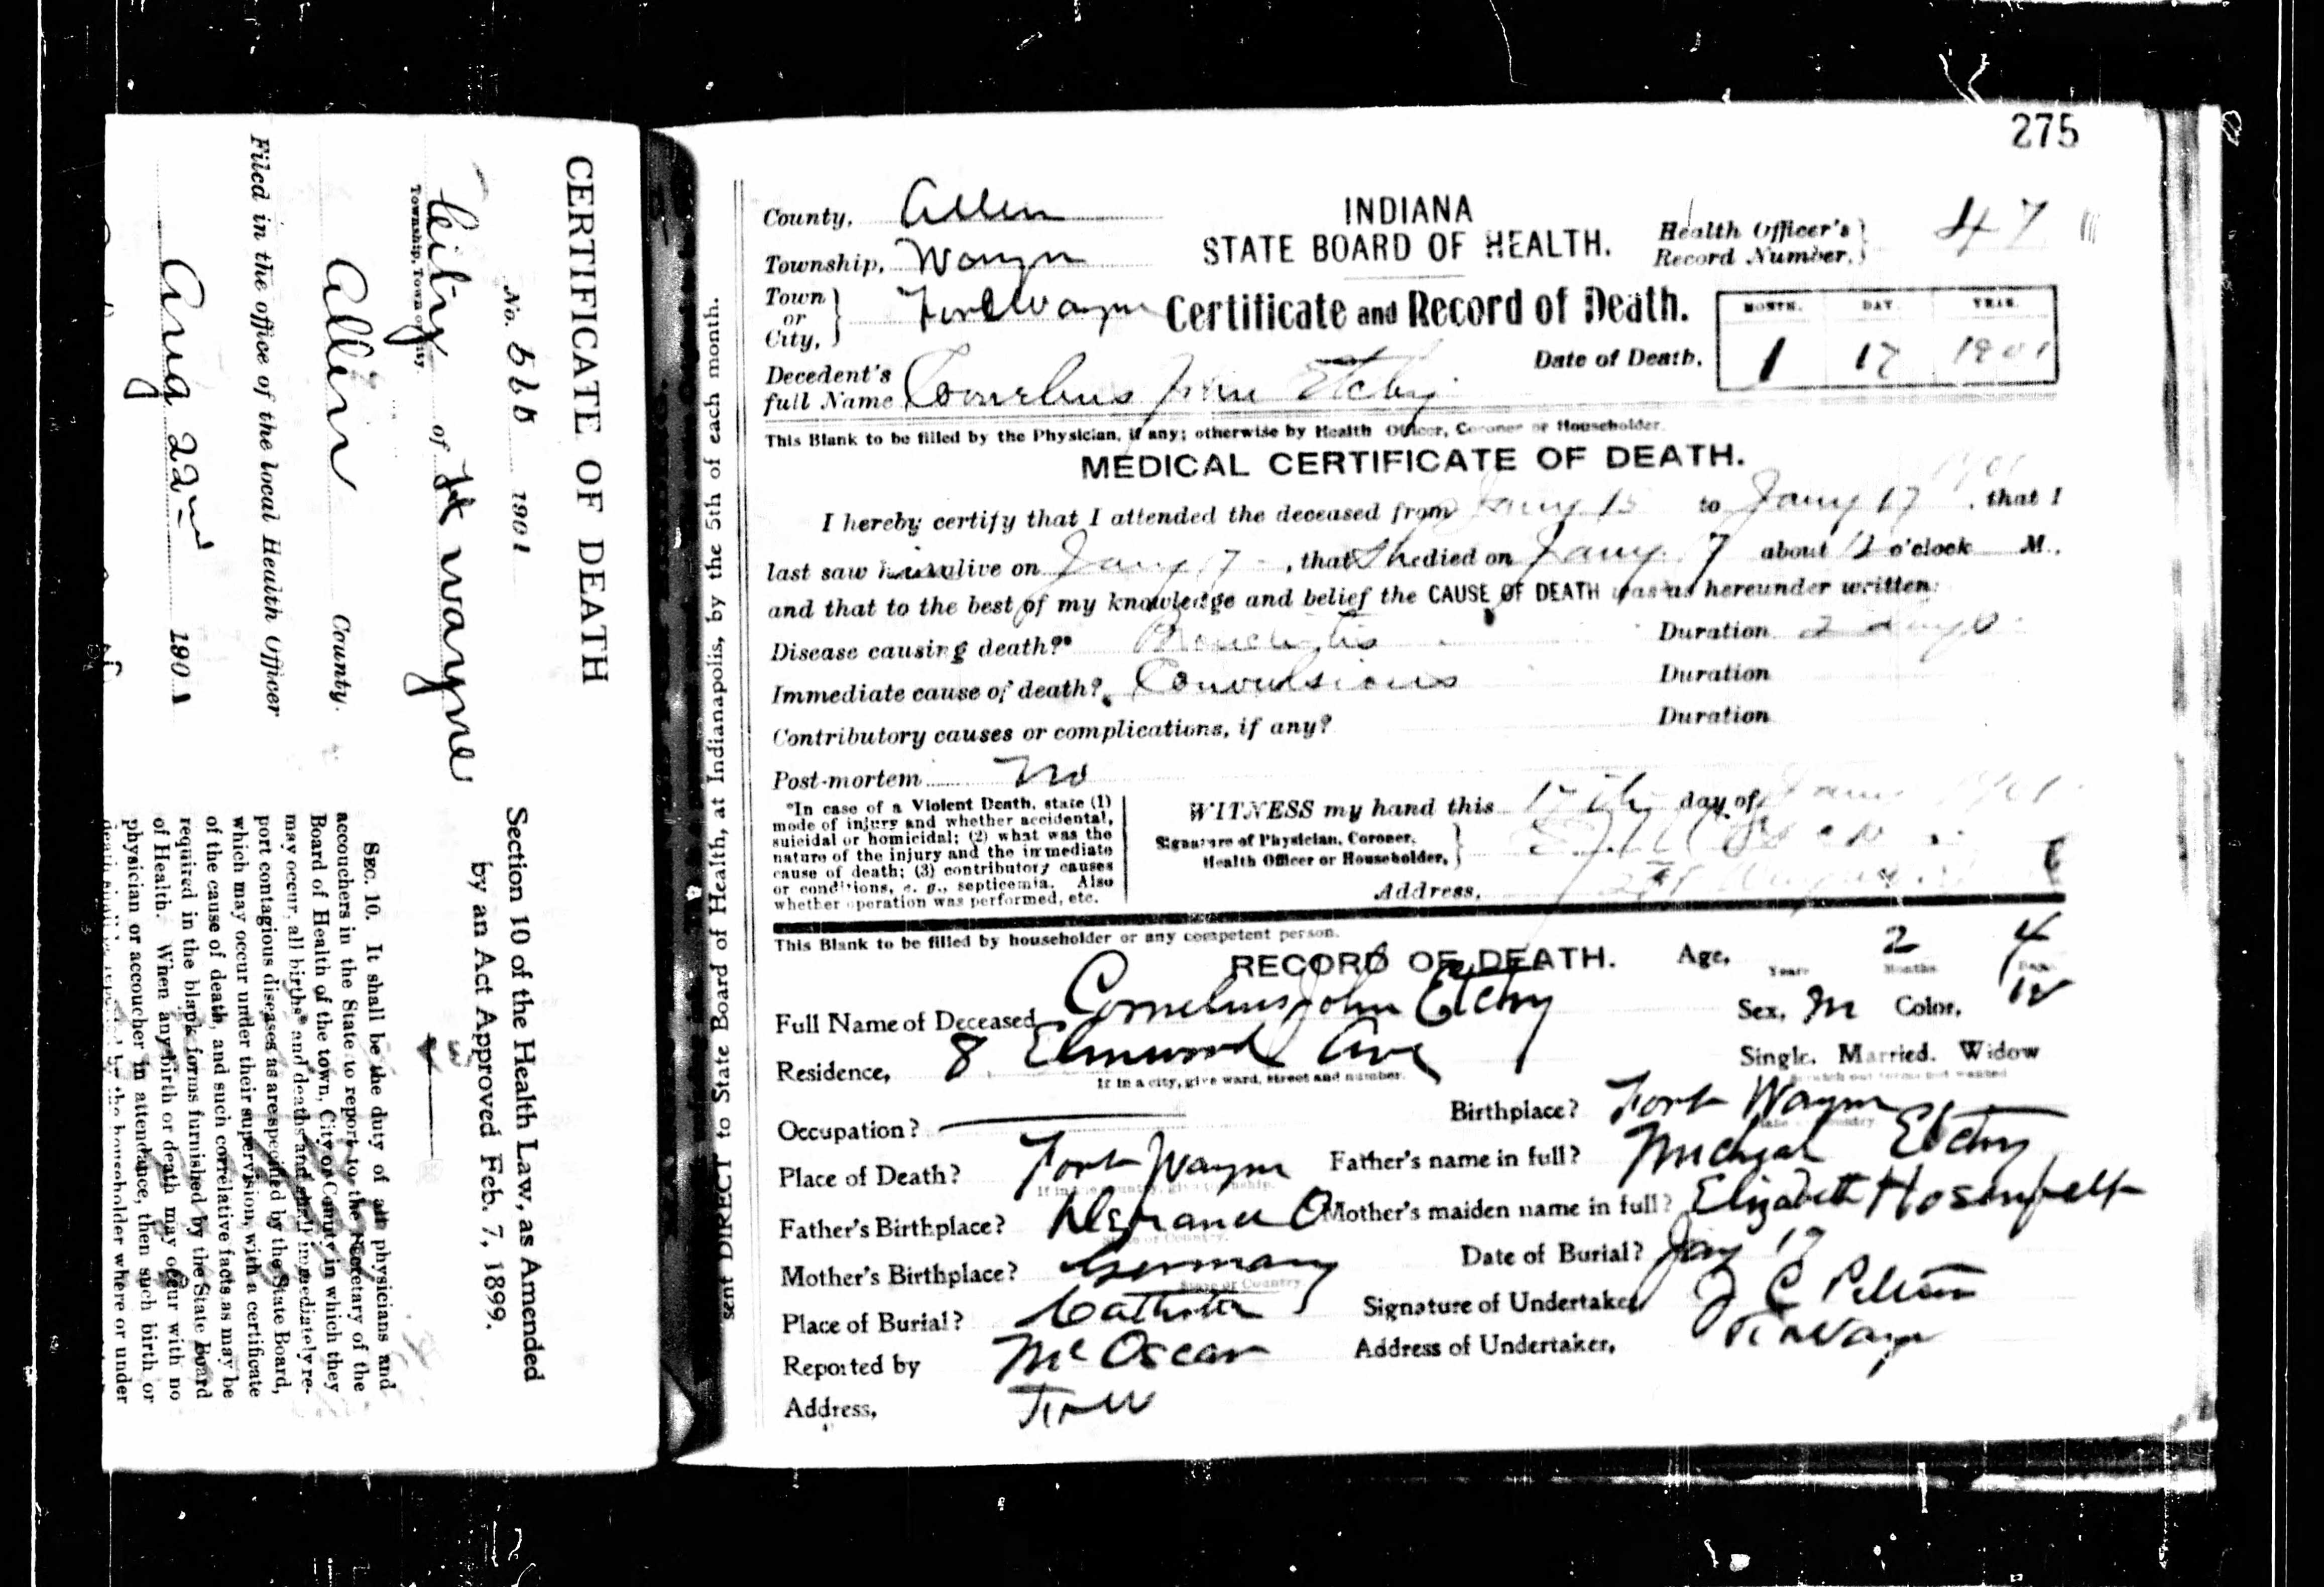 CERTIFICATE OF DEATH
No. 566 1901
City of Ft Wayne
Township, Town or City.
Allen County.
Filed in the office of the local Health Officer
Aug 22nd 1901
Section 10 of the Health Law, as Amended
by an Act Approved Feb. 7, 1899.
SEC. 10. It shall be the duty of all physicians and
accouchers in the State to report to the Secretary of the
Board of Health of the town, City or County in which they
may occur, all births and deaths and shall immediately re-
port contagious diseases as are specified by the State Board,
which may occur under their supervision, with a certificate
of the cause of death, and such correlative facts as may be
required in the blank forms furnished by the State Board
of Health. When any birth or death may occur with no
physician or accoucher in attendance, then such birth or
by the householder where or under
sent DIRECT to State Board of Health, at Indianapolis, by the 5th of each month.
275
County, Allen
INDIANA
STATE BOARD OF HEALTH.
Health Officer's Record Number, 47
Township, Wayne
Town or City, Fort Wayne
Certificate and Record of Death.
MONTH. DAY. YEAR.
Date of Death, 1 17 1901
Decedent's full Name Cornelius John Etchy
This Blank to be filled by the Physician, if any; otherwise by Health Officer, Coroner or Householder.
MEDICAL CERTIFICATE OF DEATH.
1901
I hereby certify that I attended the deceased from Jany 15 to Jany 17, that I
last saw him alive on Jany 17, that he died on Jany 17 about 12 o'clock M.,
and that to the best of my knowledge and belief the CAUSE OF DEATH was as hereunder written:
Disease causing death?* Bronchitis Duration 2 days
Immediate cause of death? Convulsions Duration
Contributory causes or complications, if any? Duration
Post-mortem No
*In case of a Violent Death, state (1)
mode of injury and whether accidental,
suicidal or homicidal; (2) what was the
nature of the injury and the immediate
cause of death; (3) contributory causes
or conditions, e. g., septicemia. Also
whether operation was performed, etc.
WITNESS my hand this 17th day of Jany 1901
Signature of Physician, Coroner,
Health Officer or Householder,
Address,
This Blank to be filled by householder or any competent person.
RECORD OF DEATH. Age, Years 2 Months 4 Days
Full Name of Deceased Cornelius John Etchy Sex, M Color, W
Residence, 8 Elmwood Ave Single. Married. Widow
If in a city, give ward, street and number.
Occupation? Birthplace? Fort Wayne
Place of Death? Fort Wayne Father's name in full? Michael Etchy
Father's Birthplace? O Mother's maiden name in full? Elizabeth Hosenfelt
State or Country.
Mother's Birthplace? Germany Date of Burial? Jany 17
State or Country
Place of Burial? Catholic Signature of Undertaker
Reported by McOscar Address of Undertaker, Ft Wayne
Address, Ft W